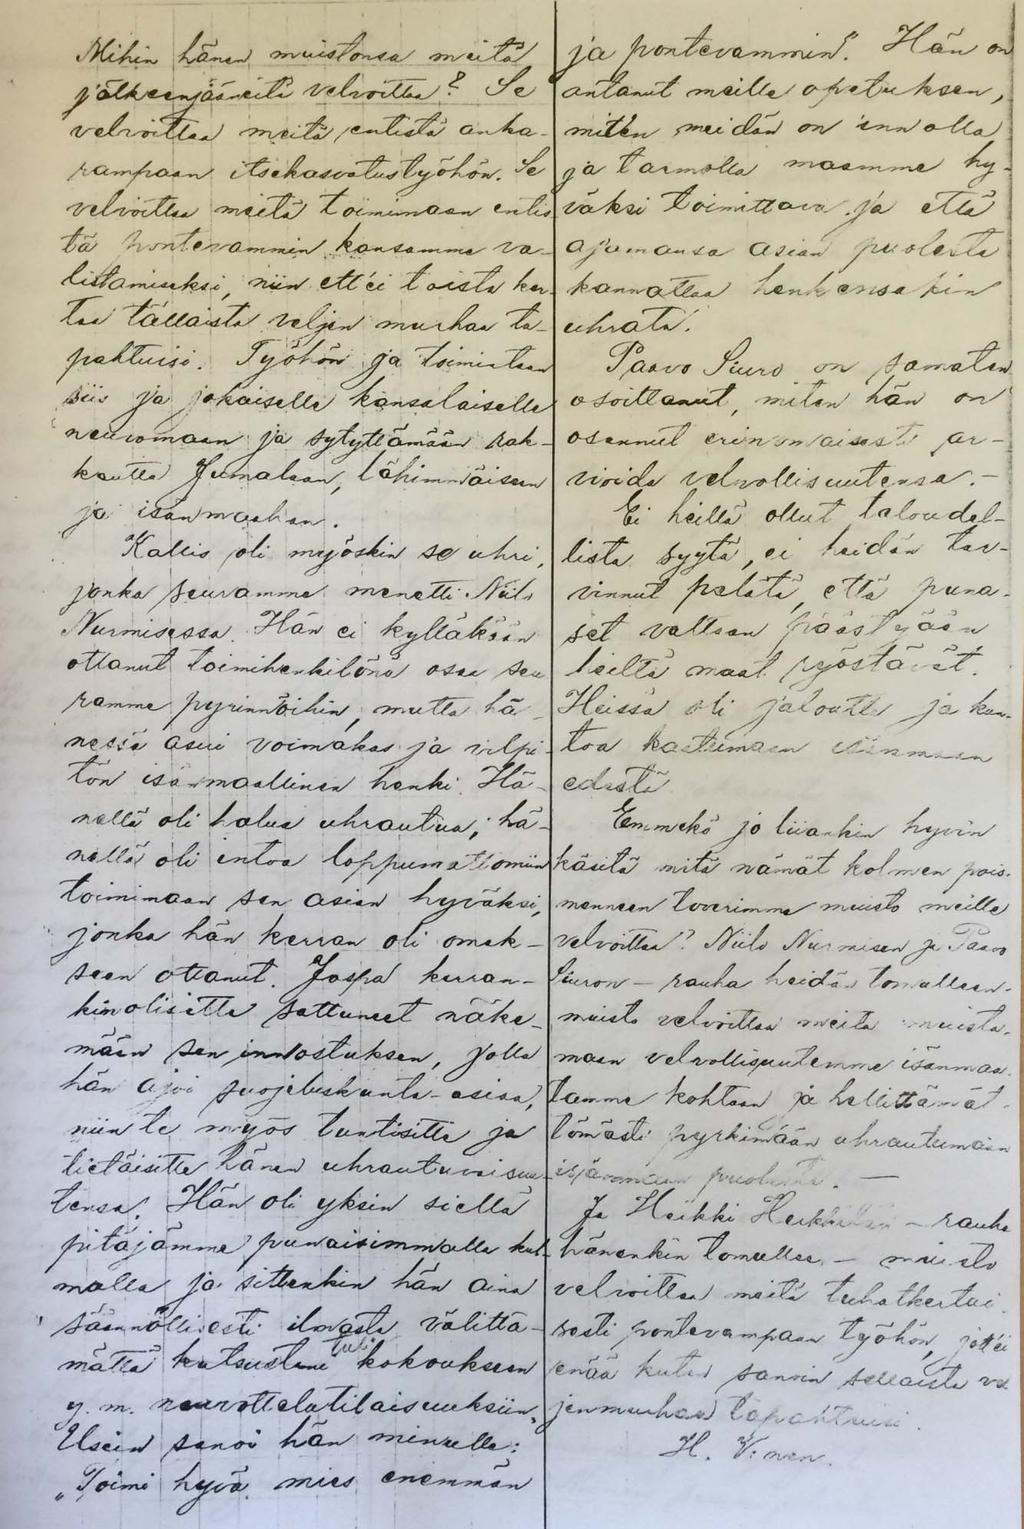 Mihin hänen muistonsa meitä
jälkeenjääneitä velvoittaa? Se
velvoittaa meitä entistä anka-
rampaan itsekasvatustyöhön. Se
velvoittaa meitä toimimaan entis
tä pontevammin kansamme va-
listamiseksi, niin ett'ei toista ker-
taa tällaista veljen murhaa ta-
pahtuisi. Työhön ja toimintaan
siis ja jokaiselle kansalaiselle
neuvomaan ja sytyttämään rak-
kautta Jumalaan, lähimmäiseen
ja isänmaahan.
Kallis oli myöskin se uhri,
jonka seuramme menetti Niilo
Nurmisessa. Hän ei kylläkään
ottanut toimihenkilönä osaa seu
ramme pyrinnöihin, mutta hä-
nessä asui voimakas ja vilpi-
tön isänmaallinen henki. Hä-
nellä oli halua uhrautua; hä-
nellä oli intoa loppumattomiin
toimimaan sen asian hyväksi,
jonka hän kerran oli omak-
seen ottanut. Jospa kerran-
kin olisitte sattuneet näke-
mään sen innostuksen, jolla
hän ajoi suojeluskunta-asiaa,
niin te myös tuntisitte ja
tietäisitte hänen uhrautuvaisuu-
tensa. Hän oli yksin siellä
pitäjämme punaisimmalla kul-
malla ja sittenkin hän aina
säännöllisesti ilmasta välittä-
mättä kutsustani tuli kokoukseen
y. m. neuvottelutilaisuuksiin.
Usein sanoi hän minulle:
„Toimi hyvä mies enemmän
ja pontevammin". Hän on
antanut meille opetuksen,
miten meidän on innolla
ja tarmolla maamme hy-
väksi toimittava ja että
ajamansa asian puolesta
kannattaa henkensäkin
uhrata.
Paavo Siuro on samaten
osoittanut, miten hän on
osannut erinomaisesti ar-
vioida velvollisuutensa. -
Ei heillä ollut taloudel-
lista syytä, ei heidän tar-
vinnut pelätä, että puna-
set valtaan päästyään
heiltä maat ryöstävät.
Heissä oli jaloutta ja kun-
toa kaatumaan isänmaan
edestä
Emmekö jo liiankin hyvin
käsitä mitä nämät kolmen pois-
menneen toverimme muisto meille
velvoittaa? Niilo Nurmisen ja Paavo
Siuron – rauha heidän tomulleen -
muisto velvoittaa meitä muista-
maan velvollisuutemme isänmaa-
tamme kohtaan ja hellittämät-
tömästi pyrkimään uhrautumaan
isänmaan puolesta. —
Ja Heikki Heikkilän – rauha
hänenkin tomulleen – muisto
velvoittaa meitä tuhatkertai
sesti pontevampaan työhön, jott'ei
enää kuten sanoin sellaista vel
jenmurhaa tapahtuisi.
H. V:nen.